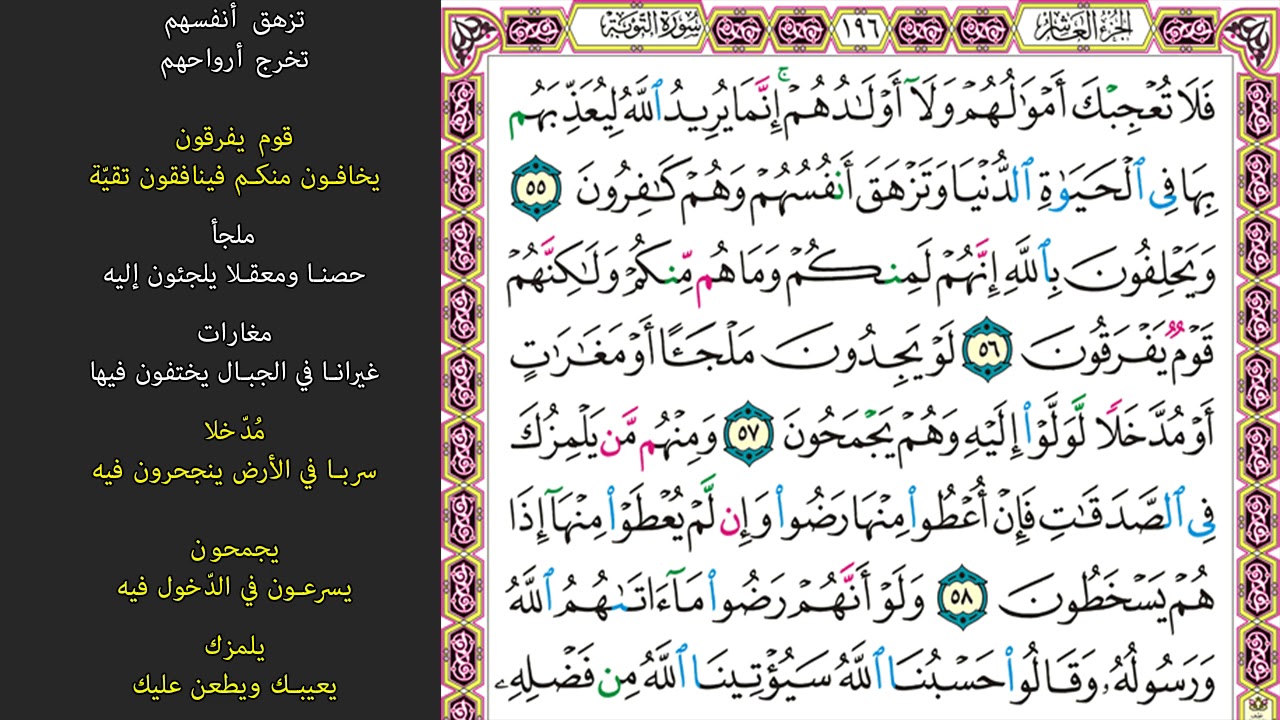 الجزء العاشر
١٩٦
سورة التوبة
فَلَا تُعْجِبْكَ أَمْوَٰلُهُمْ وَلَآ أَوْلَـٰدُهُمْ ۚ إِنَّمَا يُرِيدُ ٱللَّهُ لِيُعَذِّبَهُم
بِهَا فِى ٱلْحَيَوٰةِ ٱلدُّنْيَا وَتَزْهَقَ أَنفُسُهُمْ وَهُمْ كَـٰفِرُونَ ٥٥
وَيَحْلِفُونَ بِٱللَّهِ إِنَّهُمْ لَمِنكُمْ وَمَا هُم مِّنكُمْ وَلَـٰكِنَّهُمْ
قَوْمٌ يَفْرَقُونَ ٥٦ لَوْ يَجِدُونَ مَلْجَـًٔا أَوْ مَغَـٰرَٰتٍ
أَوْ مُدَّخَلًا لَّوَلَّوْا۟ إِلَيْهِ وَهُمْ يَجْمَحُونَ ٥٧ وَمِنْهُم مَّن يَلْمِزُكَ
فِى ٱلصَّدَقَـٰتِ فَإِنْ أُعْطُوا۟ مِنْهَا رَضُوا۟ وَإِن لَّمْ يُعْطَوْا۟ مِنْهَآ إِذَا
هُمْ يَسْخَطُونَ ٥٨ وَلَوْ أَنَّهُمْ رَضُوا۟ مَآ ءَاتَىٰهُمُ ٱللَّهُ
وَرَسُولُهُۥ وَقَالُوا۟ حَسْبُنَا ٱللَّهُ سَيُؤْتِينَا ٱللَّهُ مِن فَضْلِهِۦ
تزهق أنفسهم
تخرج أرواحهم
قوم يفرقون
يخافـون منكـم فينافقون تقيّة
ملجأ
حصنـا ومعقـلا يلجئون إليه
مغارات
غيرانـا في الجبـال يختفون فيها
مُدّخلا
سربـا في الأرض ينجحرون فيه
يجمحون
يسرعـون في الدّخول فيه
يلمزك
يعيبـك ويطعن عليك